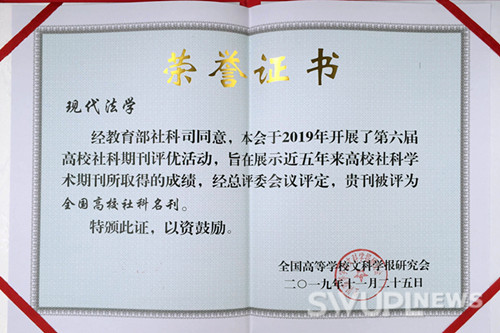 荣誉证书
现代法学
经教育部社科司同意，本会于2019年开展了第六届
高校社科期刊评优活动，旨在展示近五年来高校社科学
术期刊所取得的成绩，经总评委会议评定，贵刊被评为
全国高校社科名刊。
特颁此证，以资鼓励。
全国高等学校文科学报研究会
二〇一九年十一月二十五日
SWUPLNEWS